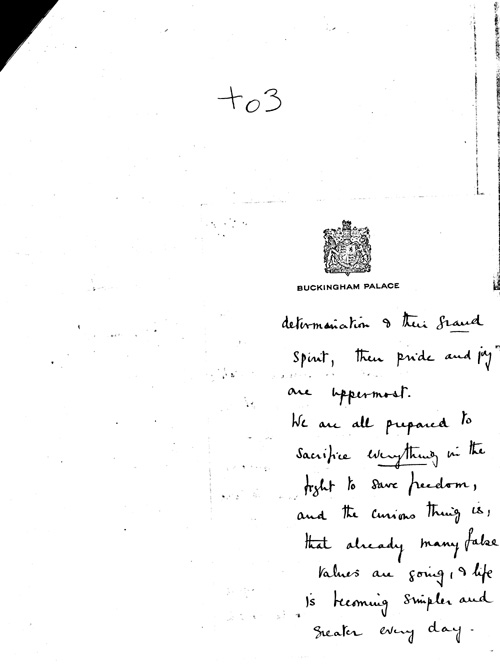 to3
BUCKINGHAM PALACE
determination & their grand
spirit, then pride and joy
are uppermost.
We are all prepared to
sacrifice everything in the
fight to save freedom,
and the curious thing is,
that already many false
values are going, & life
is becoming simpler and
greater every day.